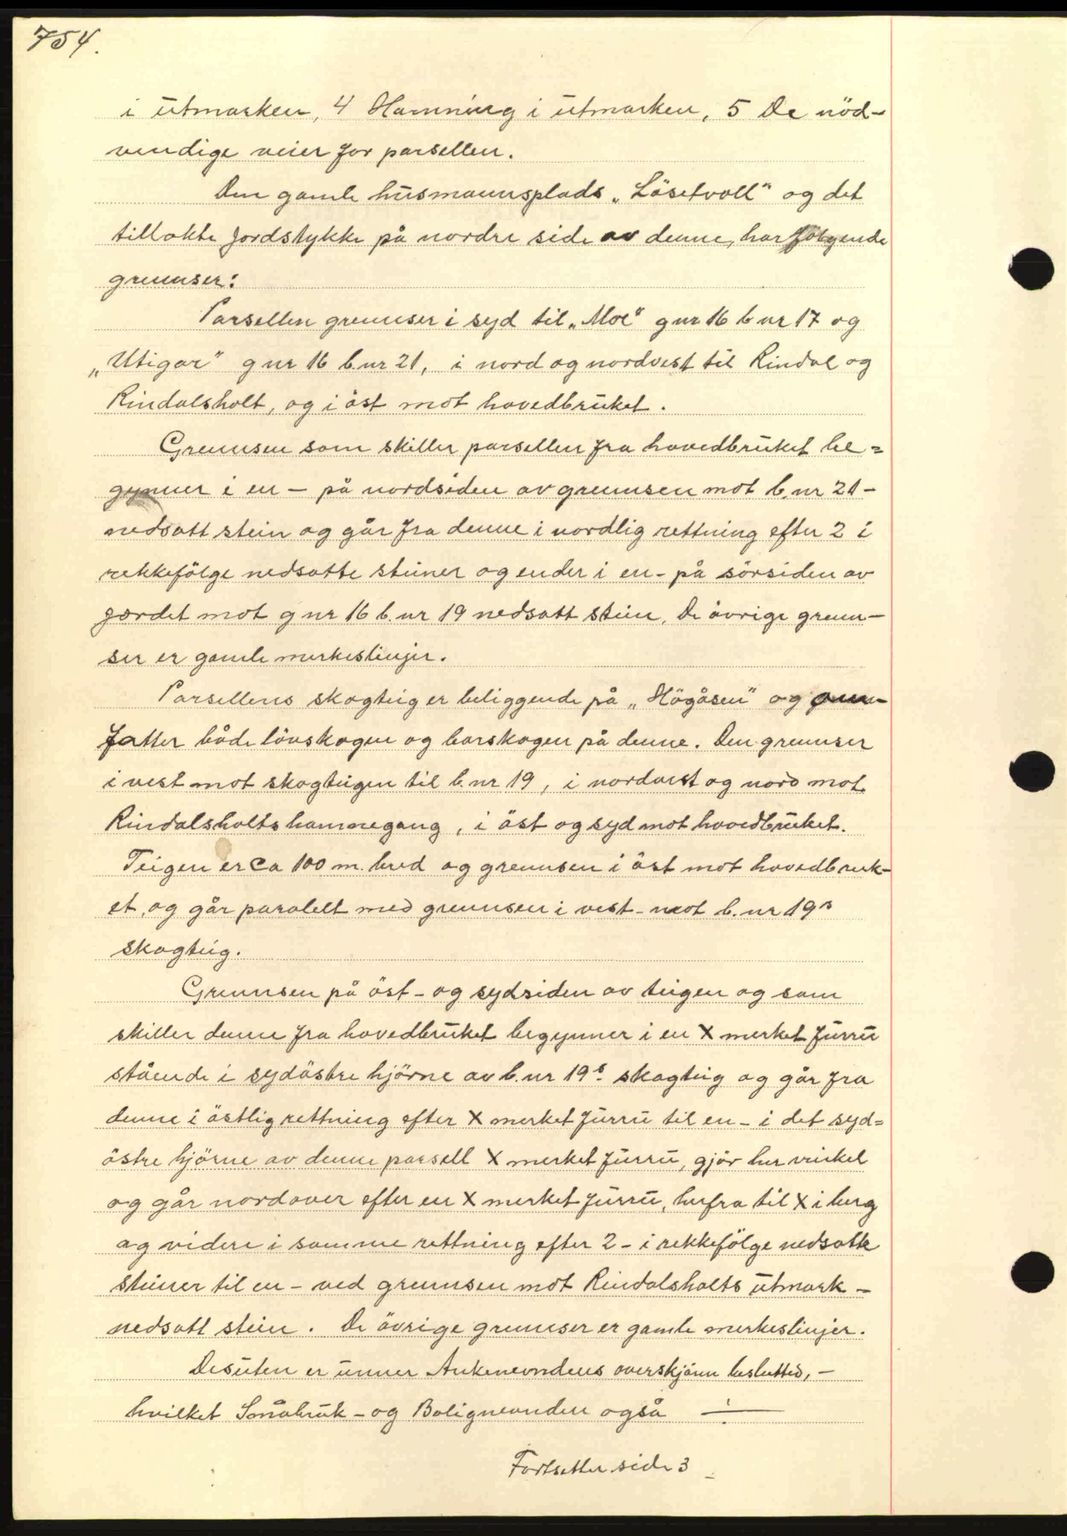 754.
i utmarken, 4 Hamning i utmarken, 5 De nöd-
vendige veier for parsellen.
Den gamle husmannsplads „Lösetvoll" og det
tillakte jordstykke på nordre side av denne, har fölgende
grenser:
Parsellen grenser i syd til „Moe" g nr 16 b nr 17 og
„Utigar" g nr 16 b. nr 21, i nord og nordvest til Rindal og
Rindalsholt, og i öst mot hovedbruket.
Grensen som skiller parsellen fra hovedbruket be=
gynner i en - på nordsiden av grensen mot b. nr 21 -
nedsatt stein og går fra denne i nordlig rettning efter 2 i
rekkefölge nedsatte steiner og ender i en - på sörsiden av
jordet mot g nr 16 b. nr 19 nedsatt stein. De övrige gren-
ser er gamle merkeslinjer.
Parsellens skogteig er beliggende på „Högåsen" og om-
fatter både lövskogen og barskogen på denne. Den grenser
i vest mot skogteigen til b. nr 19, i nordvest og nord mot
Rindalsholts hamnegang, i öst og syd mot hovedbruket.
Teigen er ca 100 m. bred og grensen i öst mot hovedbruk-
et, og går paralelt med grensen i vest - mot b. nr 19s
skogteig.
Grensen på öst- og sydsiden av teigen og som
skiller denne fra hovedbruket begynner i en X merket furru
stående i sydöstre hjörne av b. nr 19s skogteig og går fra
denne i östlig rettning efter X merket furru til en - i det syd=
östre hjörne av denne parsell X merket furru, gjör her vinkel
og går nordover efter en X merket furru, herfra til X i berg
og videre i samme rettning efter 2 - i rekkefölge nedsatte
steiner til en - ved grensen mot Rindalsholts utmark -
nedsatt stein. De övrige grenser er gamle merkeslinjer.
Desuten er unner Ankenevndens overskjönn beslutted, -
hvilket Småbruk- og Bolignevnden også ÷
Fortsetter side 3